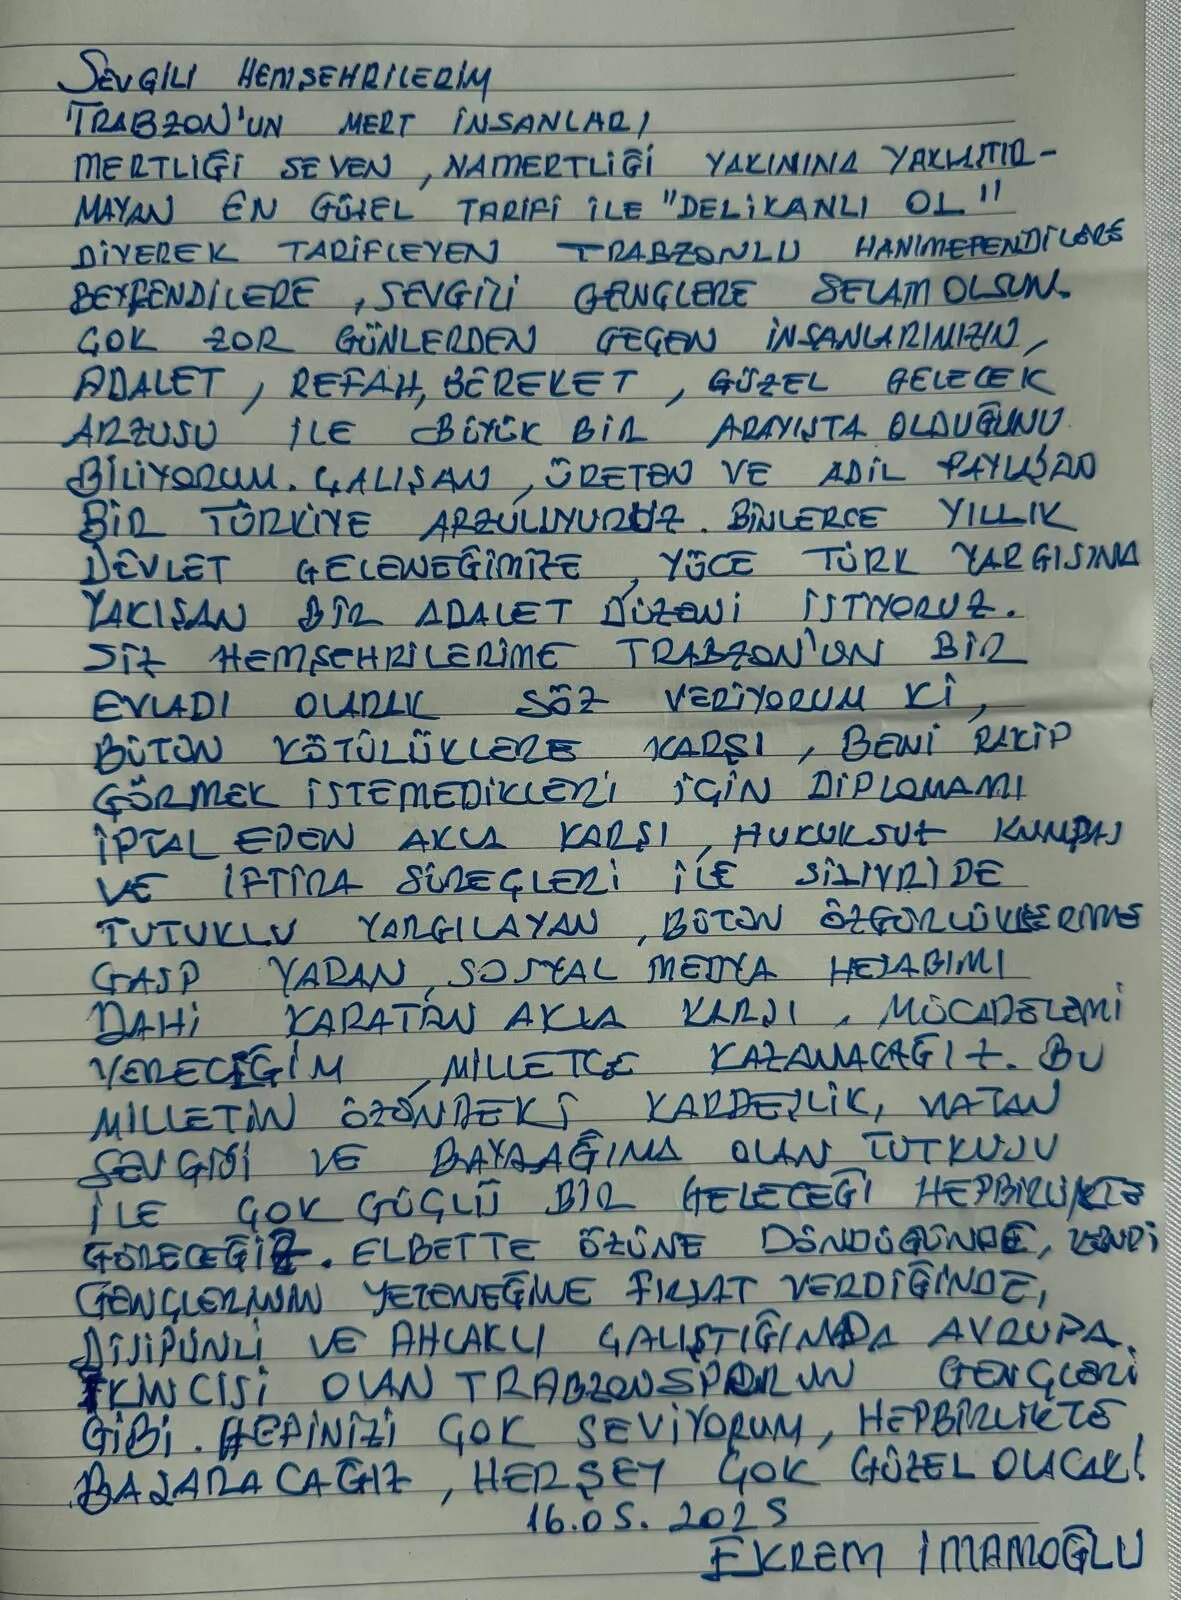 SEVGİLİ HEMŞEHRİLERİM
TRABZON'UN MERT İNSANLARI
MERTLİĞİ SEVEN, NAMERTLİĞİ YAKININA YAKLAŞTIR-
MAYAN EN GÜZEL TARİFİ İLE "DELİKANLI OL"
DİYEREK TARİFLEYEN TRABZONLU HANIMEFENDİLERE
BEYFENDİLERE, SEVGİLİ GENÇLERE SELAM OLSUN.
ÇOK ZOR GÜNLERDEN GEÇEN İNSANLARIMIZIN,
ADALET, REFAH, BEREKET, GÜZEL GELECEK
ARZUSU İLE BÜYÜK BİR ARAYIŞTA OLDUĞUNU
BİLİYORUM. ÇALIŞAN, ÜRETEN VE ADİL PAYLAŞAN
BİR TÜRKİYE ARZULUYURUZ. BİNLERCE YILLIK
DEVLET GELENEĞİMİZE, YÜCE TÜRK YARGISINA
YAKIŞAN BİR ADALET DÜZENİ İSTİYORUZ.
SİZ HEMŞEHRİLERİME TRABZON'UN BİR
EVLADI OLARAK SÖZ VERİYORUM Kİ,
BÜTÜN KÖTÜLÜKLERE KARŞI, BENİ RAKİP
GÖRMEK İSTEMEDİKLERİ İÇİN DİPLOMAMI
İPTAL EDEN AKLA KARŞI, HUKUKSUZ KUMPAS
VE İFTİRA SÜREÇLERİ İLE SİLİVRİDE
TUTUKLU YARGILAYAN, BÜTÜN ÖZGÜRLÜKLERİME
GASP YAPAN, SOSYAL MEDYA HESABIMI
DAHİ KARATAN AKLA KARŞI, MÜCADELEMİ
VERECEĞİM, MİLLETÇE KAZANACAĞIZ. BU
MİLLETİN ÖZÜNDEKİ KARDEŞLİK, VATAN
SEVGİSİ VE BAYRAĞIMA OLAN TUTKUSU
İLE ÇOK GÜÇLÜ BİR GELECEĞİ HEPBİRLİKTE
GÖRECEĞİZ. ELBETTE ÖZÜNE DÖNDÜĞÜNDE, KENDİ
GENÇLERİNİN YETENEĞİNE FIRSAT VERDİĞİNDE,
DİSİPLİNLİ VE AHLAKLI ÇALIŞTIĞINDA AVRUPA
İKİNCİSİ OLAN TRABZONSPORUN GENÇLERİ
GİBİ. HEPİNİZİ ÇOK SEVİYORUM, HEPBİRLİKTE
BAŞARACAĞIZ, HERŞEY ÇOK GÜZEL OLACAK!
16.05.2025
EKREM İMAMOĞLU